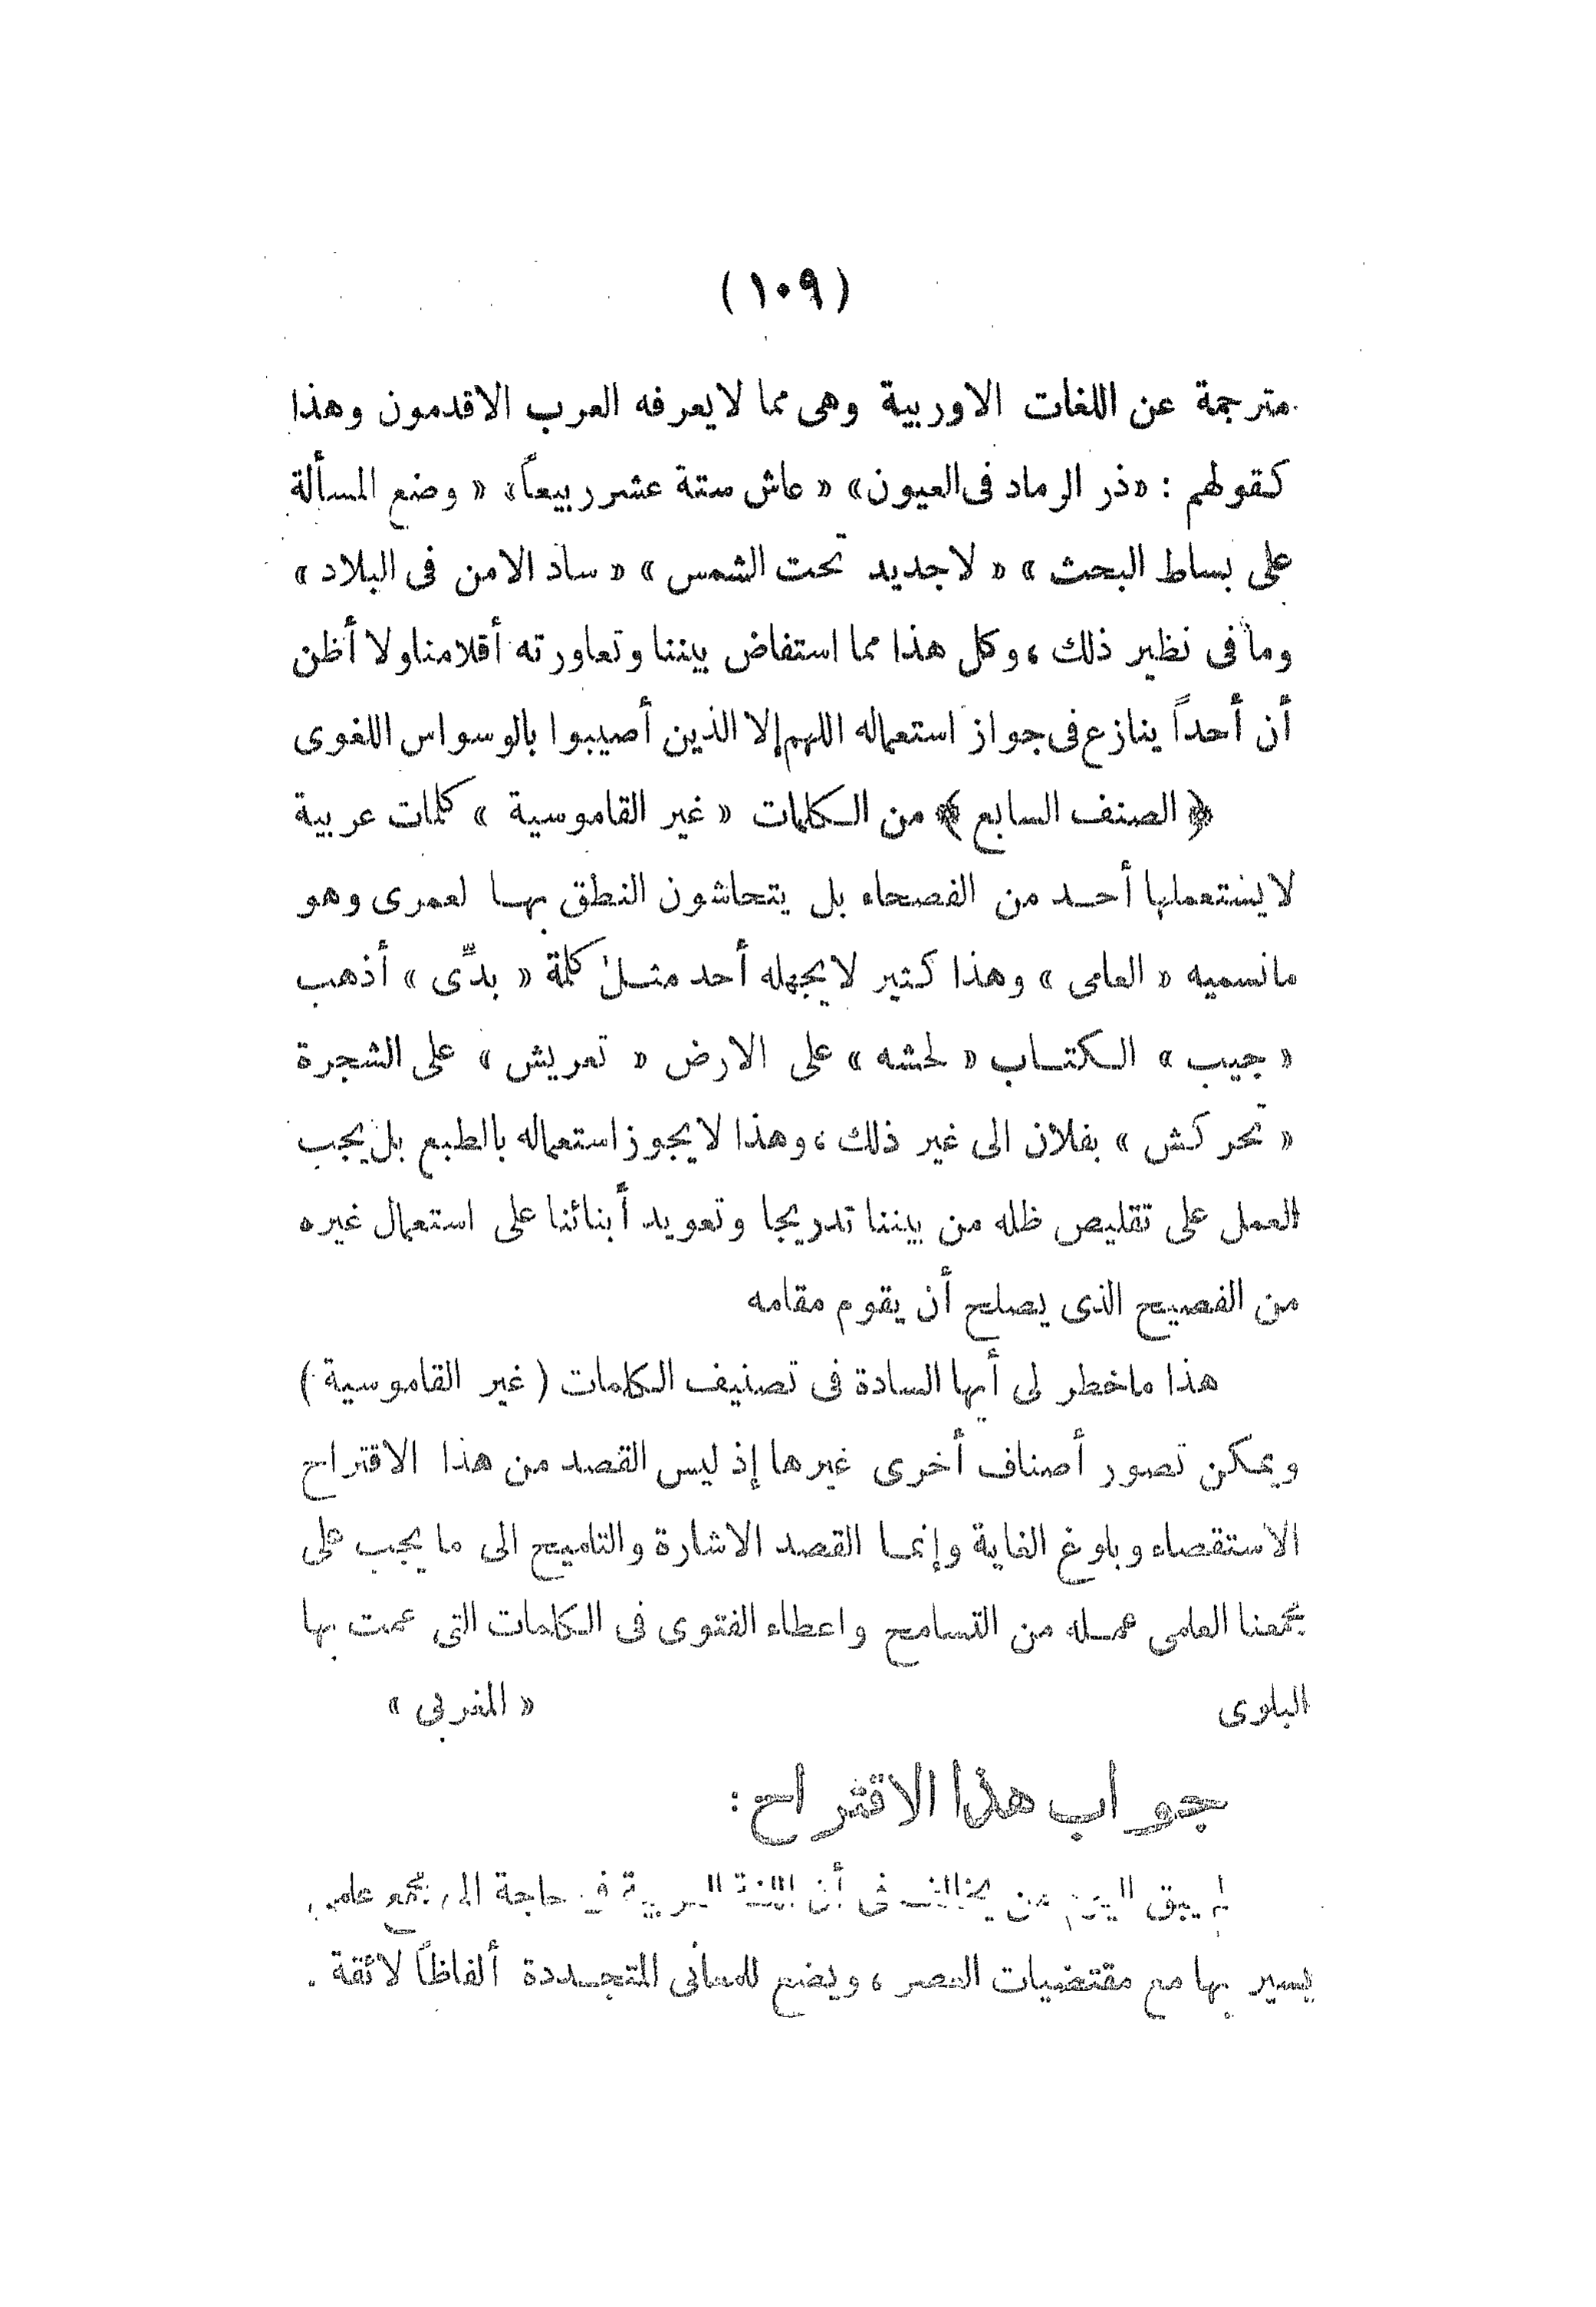 (١٠٩)
مترجمة عن اللغات الاوربية وهى مما لايعرفه العرب الاقدمون وهذا
كقولهم : «ذر الرماد فى العيون» « عاش ستة عشر ربيعاً» « وضع المسألة
على بساط البحث » « لا جديد تحت الشمس » « ساد الامن فى البلاد »
وما فى نظير ذلك ، وكل هذا مما استفاض بيننا وتعاورته أقلامنا ولا أظن
أن أحداً ينازع فى جواز استعماله اللهم إلا الذين أصيبوا بالوسواس اللغوى
﴿ الصنف السابع ﴾ من الكلمات « غير القاموسية » كلمات عربية
لايستعملها أحد من الفصحاء بل يتحاشون النطق بها لعمرى وهو
مانسميه « العامى » وهذا كثير لايجهله أحد مثل كلمة « بدِّى » أذهب
« جيب » الكتاب « لحشه » على الارض « تعريش » على الشجرة
« تحركش » بفلان الى غير ذلك ، وهذا لايجوز استعماله بالطبع بل يجب
العمل على تقليص ظله من بيننا تدريجا وتعويد أبنائنا على استعمال غيره
من الفصيح الذى يصلح أن يقوم مقامه
هذا ماخطر لى أيها السادة فى تصنيف الكلمات ( غير القاموسية )
ويمكن تصور أصناف أخرى غيرها إذ ليس القصد من هذا الاقتراح
الاستقصاء وبلوغ الغاية وإنما القصد الاشارة والتلميح الى ما يجب على
مجمعنا العلمى عمله من التسامح واعطاء الفتوى فى الكلمات التى عمت بها
البلوى « المغربى »
جواب هذا الاقتراح :
لم يبق اليوم من يخالف فى أن اللغة العربية فى حاجة الى مجمع علمى
يسير بها مع مقتضيات العصر ، ويضع للمعانى المتجددة ألفاظاً لائقة .